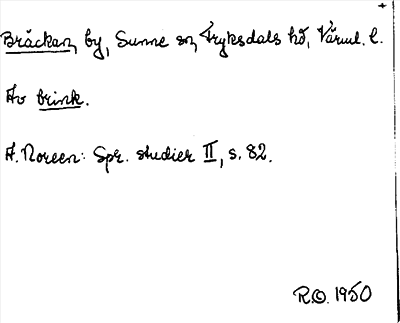 Bräcken, by, Sunne sn, Fryksdals hd, Värml. l.
Av brink.
A. Noreen: Spr. studier II, s. 82.
R.O. 1950